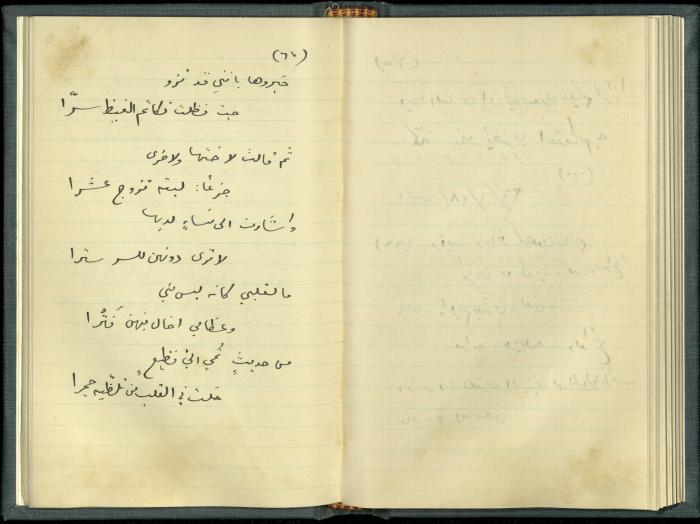 (٦٧)
خبروها بانني قد تزو
جت فظلت تكاتم الغيظ سرّا
ثم قالت لاختها ولاخرى
جزعًا: ليته تزوج عشرا
واشارت الى نساءٍ لديها
لا ترى دونهن للسر سترا
ما لقلبي كأنه ليس مني
وعظامي اخال فيهن فَتْرا
من حديثٍ نُمي اليّ فظيعٍ
خلت في القلب من تلظّيه جمرا